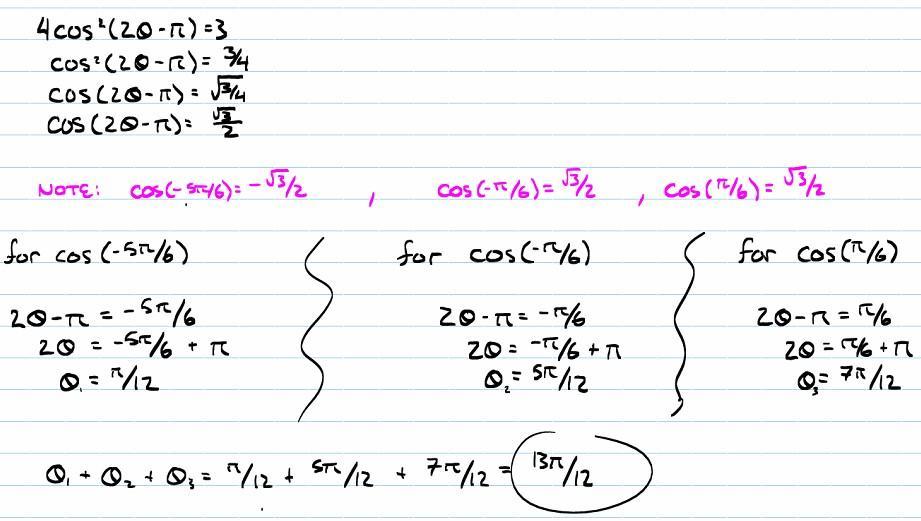 4cos²(2θ-π)=3
cos²(2θ-π)= 3/4
cos(2θ-π)= √3/4
cos(2θ-π)= √3/2
NOTE: cos(-5π/6)= -√3/2 , cos(-π/6)= √3/2 , cos(π/6)= √3/2
for cos(-5π/6)
2θ-π = -5π/6
2θ = -5π/6 + π
θ₁ = π/12
for cos(-π/6)
2θ-π = -π/6
2θ = -π/6 + π
θ₂ = 5π/12
for cos(π/6)
2θ-π = π/6
2θ = π/6 + π
θ₃ = 7π/12
θ₁ + θ₂ + θ₃ = π/12 + 5π/12 + 7π/12 = 13π/12